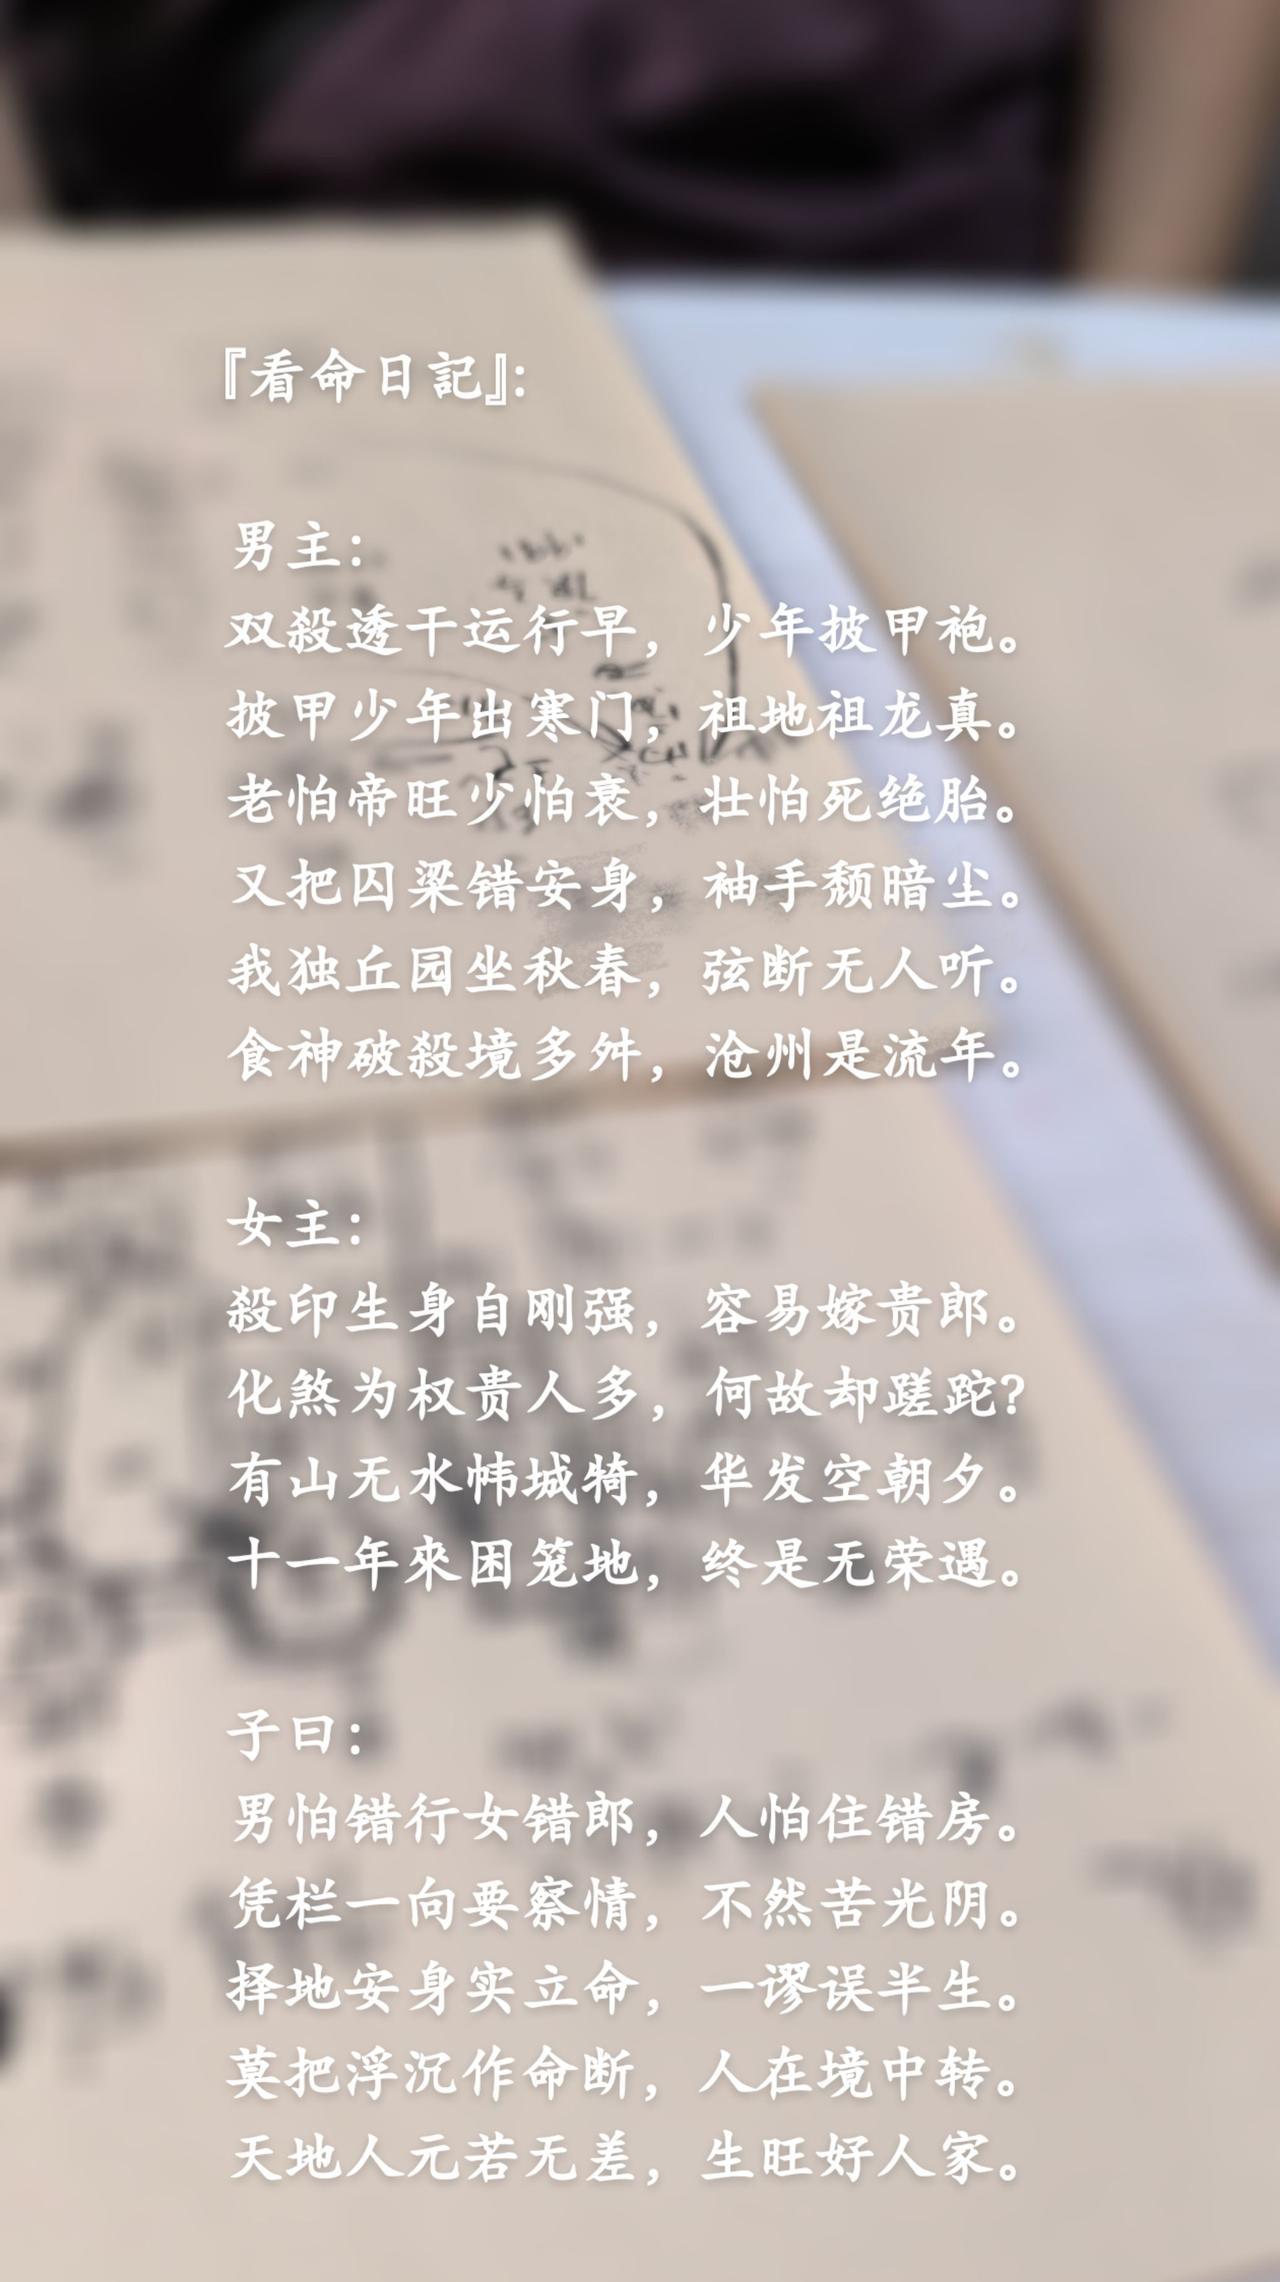 『看命日記』:
男主:
双殺透干运行早，少年披甲袍。
披甲少年出寒门，祖地祖龙真。
老怕帝旺少怕衰，壮怕死绝胎。
又把囚梁错安身，袖手颓暗尘。
我独丘园坐秋春，弦断无人听。
食神破殺境多舛，沧州是流年。
女主:
殺印生身自刚强，容易嫁贵郎。
化煞为权贵人多，何故却蹉跎?
有山无水帏城犄，华发空朝夕。
十一年來困笼地，终是无荣遇。
子曰:
男怕错行女错郎，人怕住错房。
凭栏一向要察情，不然苦光阴。
择地安身实立命，一谬误半生。
莫把浮沉作命断，人在境中转。
天地人元若无差，生旺好人家。